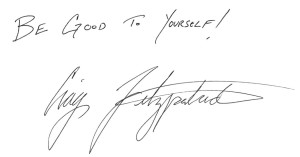 BE GOOD TO YOURSELF!
Craig Fitzpatrick